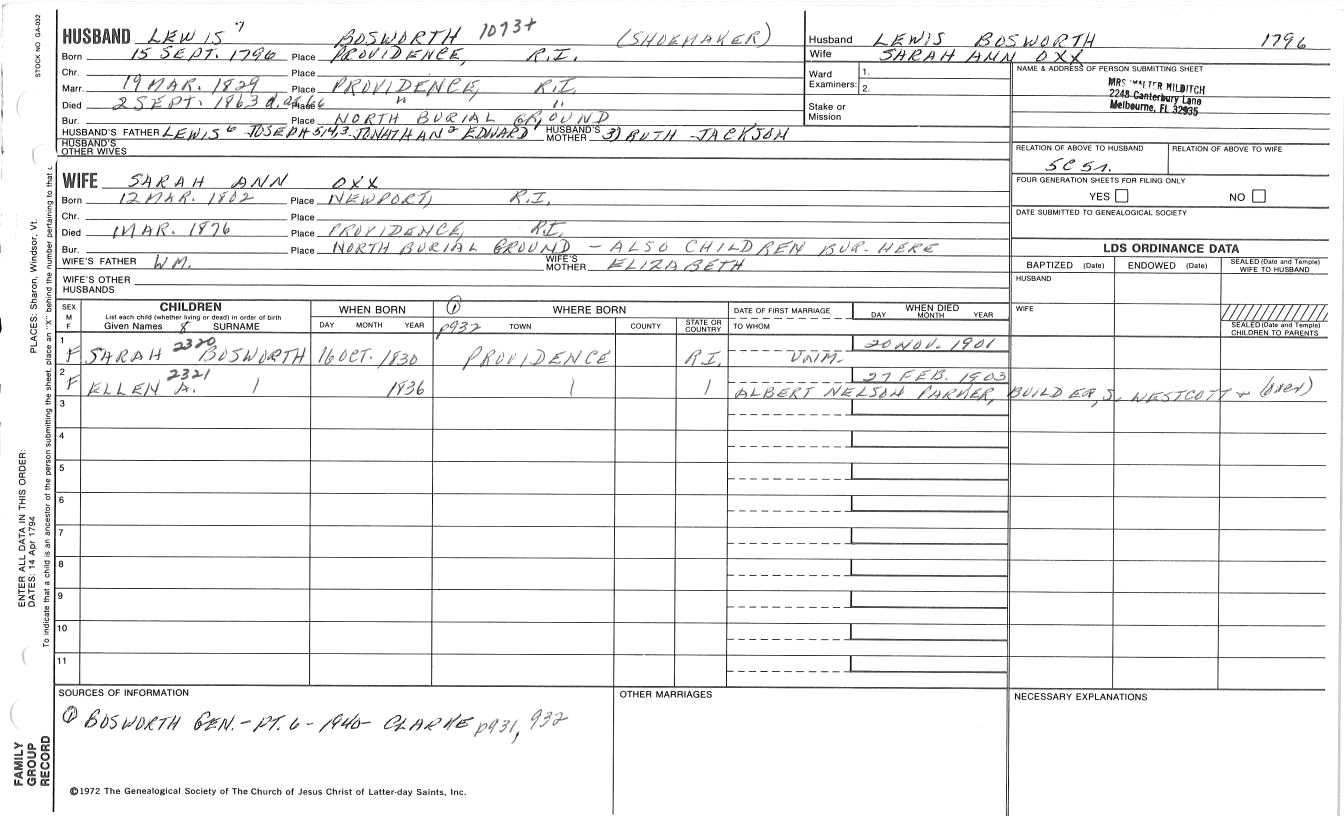 STOCK NO. GA-032
HUSBAND LEWIS 7 BOSWORTH 1073+ (SHOEMAKER)
Born 15 SEPT. 1796 Place PROVIDENCE, R.I.
Chr. Place
Marr. 19 MAR. 1829 Place PROVIDENCE, R.I.
Died 2 SEPT. 1863 Place " "
Bur. Place NORTH BURIAL GROUND
HUSBAND'S FATHER LEWIS 6 JOSEPH 5,4,3 JONATHAN 2 EDWARD 1 HUSBAND'S MOTHER 3) RUTH JACKSON
HUSBAND'S OTHER WIVES
Husband LEWIS BOSWORTH 1796
Wife SARAH ANN OXX
Ward Examiners: 1.
2.
Stake or Mission
NAME & ADDRESS OF PERSON SUBMITTING SHEET
MRS WALTER MILDITCH
2248 Canterbury Lane
Melbourne, FL 32935
RELATION OF ABOVE TO HUSBAND RELATION OF ABOVE TO WIFE
5C 5r.
FOUR GENERATION SHEETS FOR FILING ONLY
YES NO
DATE SUBMITTED TO GENEALOGICAL SOCIETY
WIFE SARAH ANN OXX
Born 12 MAR. 1802 Place NEWPORT, R.I.
Chr. Place
Died MAR. 1876 Place PROVIDENCE, R.I.
Bur. Place NORTH BURIAL GROUND - ALSO CHILDREN BUR. HERE
WIFE'S FATHER WM. WIFE'S MOTHER ELIZABETH
WIFE'S OTHER HUSBANDS
LDS ORDINANCE DATA
BAPTIZED (Date) ENDOWED (Date) SEALED (Date and Temple) WIFE TO HUSBAND
HUSBAND
WIFE
SEALED (Date and Temple) CHILDREN TO PARENTS
SEX M F CHILDREN WHEN BORN ① WHERE BORN DATE OF FIRST MARRIAGE WHEN DIED
List each child (whether living or dead) in order of birth
Given Names 8 SURNAME DAY MONTH YEAR p932 TOWN COUNTY STATE OR COUNTRY TO WHOM DAY MONTH YEAR
1 F SARAH 2320 BOSWORTH 16 OCT. 1830 PROVIDENCE R.I. UNM. 20 NOV. 1901
2 F ELLEN A. 2321 1836 27 FEB. 1903
ALBERT NELSON PARMER, BUILDER, S. WESTCOTT + (over)
3
4
5
6
7
8
9
10
11
SOURCES OF INFORMATION
① BOSWORTH GEN. - PT. 6 - 1940 - CLARKE p931, 932
OTHER MARRIAGES
NECESSARY EXPLANATIONS
©1972 The Genealogical Society of The Church of Jesus Christ of Latter-day Saints, Inc.
FAMILY GROUP RECORD
ENTER ALL DATA IN THIS ORDER:
DATES: 14 Apr 1794
PLACES: Sharon, Windsor, Vt.
To indicate that a child is an ancestor of the person submitting the sheet, place an "X" behind the number pertaining to that